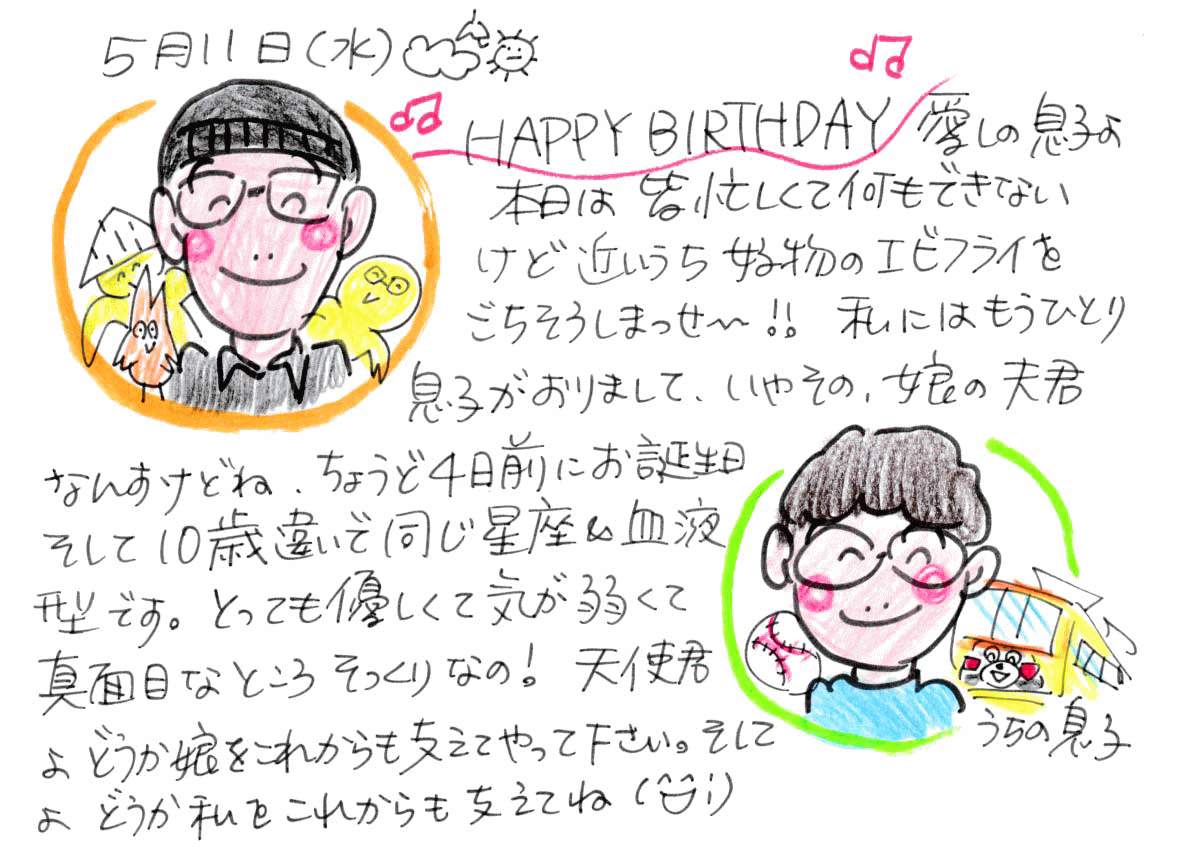 5月11日(水)
HAPPY BIRTHDAY 愛しの息子よ
本日は皆忙しくて何もできない
けど近いうち好物のエビフライを
ごちそうしまっせ〜!! 私にはもうひとり
息子がおりまして、いやその、娘の夫君
なんすけどね、ちょうど4日前にお誕生日
そして10歳違いで同じ星座&血液
型です。とっても優しくて気が弱くて
真面目なところそっくりなの! 天使君
よどうか娘をこれからも支えてやって下さい。そして
よどうか私をこれからも支えてね(^U^;)
うちの息子